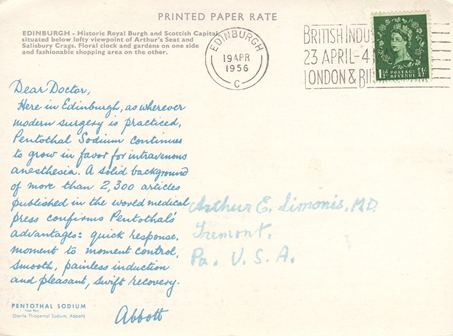 PRINTED PAPER RATE
EDINBURGH - Historic Royal Burgh and Scottish Capital,
situated below lofty viewpoint of Arthur's Seat and
Salisbury Crags. Floral clock and gardens on one side
and fashionable shopping area on the other.
EDINBURGH
19 APR
1956
C
BRITISH INDUS
23 APRIL-4 M
LONDON & BI
POSTAGE REVENUE
1½D
Dear Doctor,
Here in Edinburgh, as wherever
modern surgery is practiced,
Pentothal Sodium continues
to grow in favor for intravenous
anesthesia. A solid background
of more than 2,300 articles
published in the world medical
press confirms Pentothal's
advantages: quick response,
moment to moment control,
smooth, painless induction
and pleasant, swift recovery.
Abbott
Arthur E. Simonis, M.D.
Tremont,
Pa. U.S.A.
PENTOTHAL SODIUM
(Sterile Thiopental Sodium, Abbott)